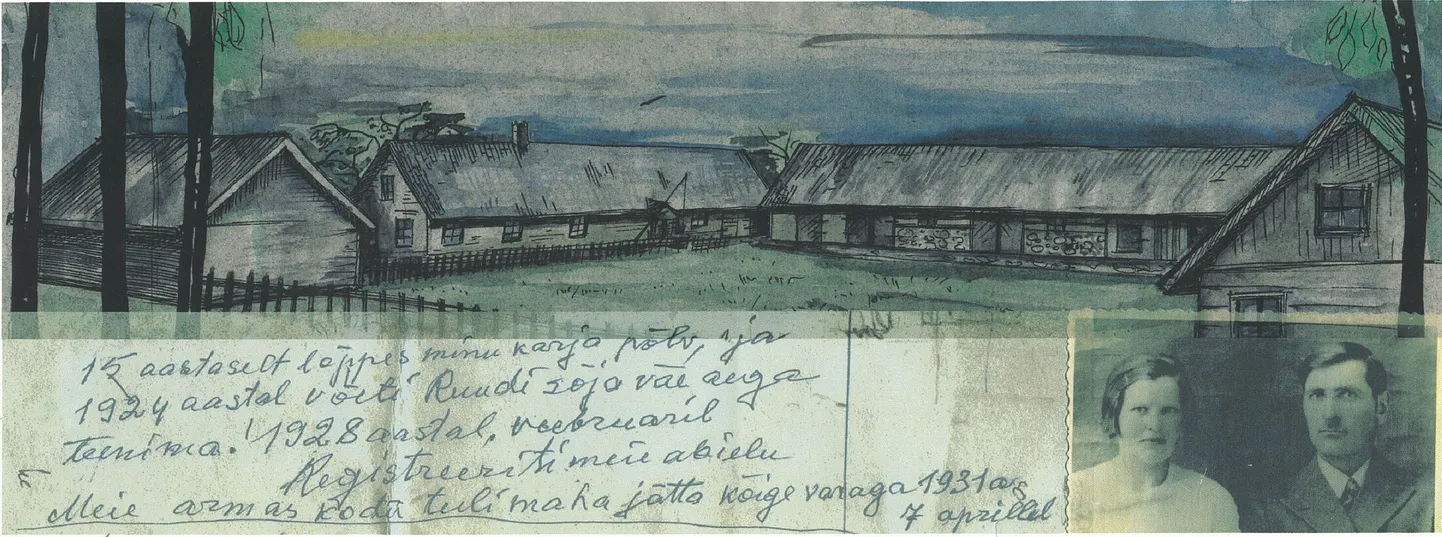 15 aastaselt lõppes minu karja põlv, ja
1924 aastal võeti Ruudi sõja väe aega
teenima. 1928 aastal, veebruaril
Registreeriti meie abielu
Meie armas kodu tuli maha jätta kõige varaga 1931 a
7 aprillil